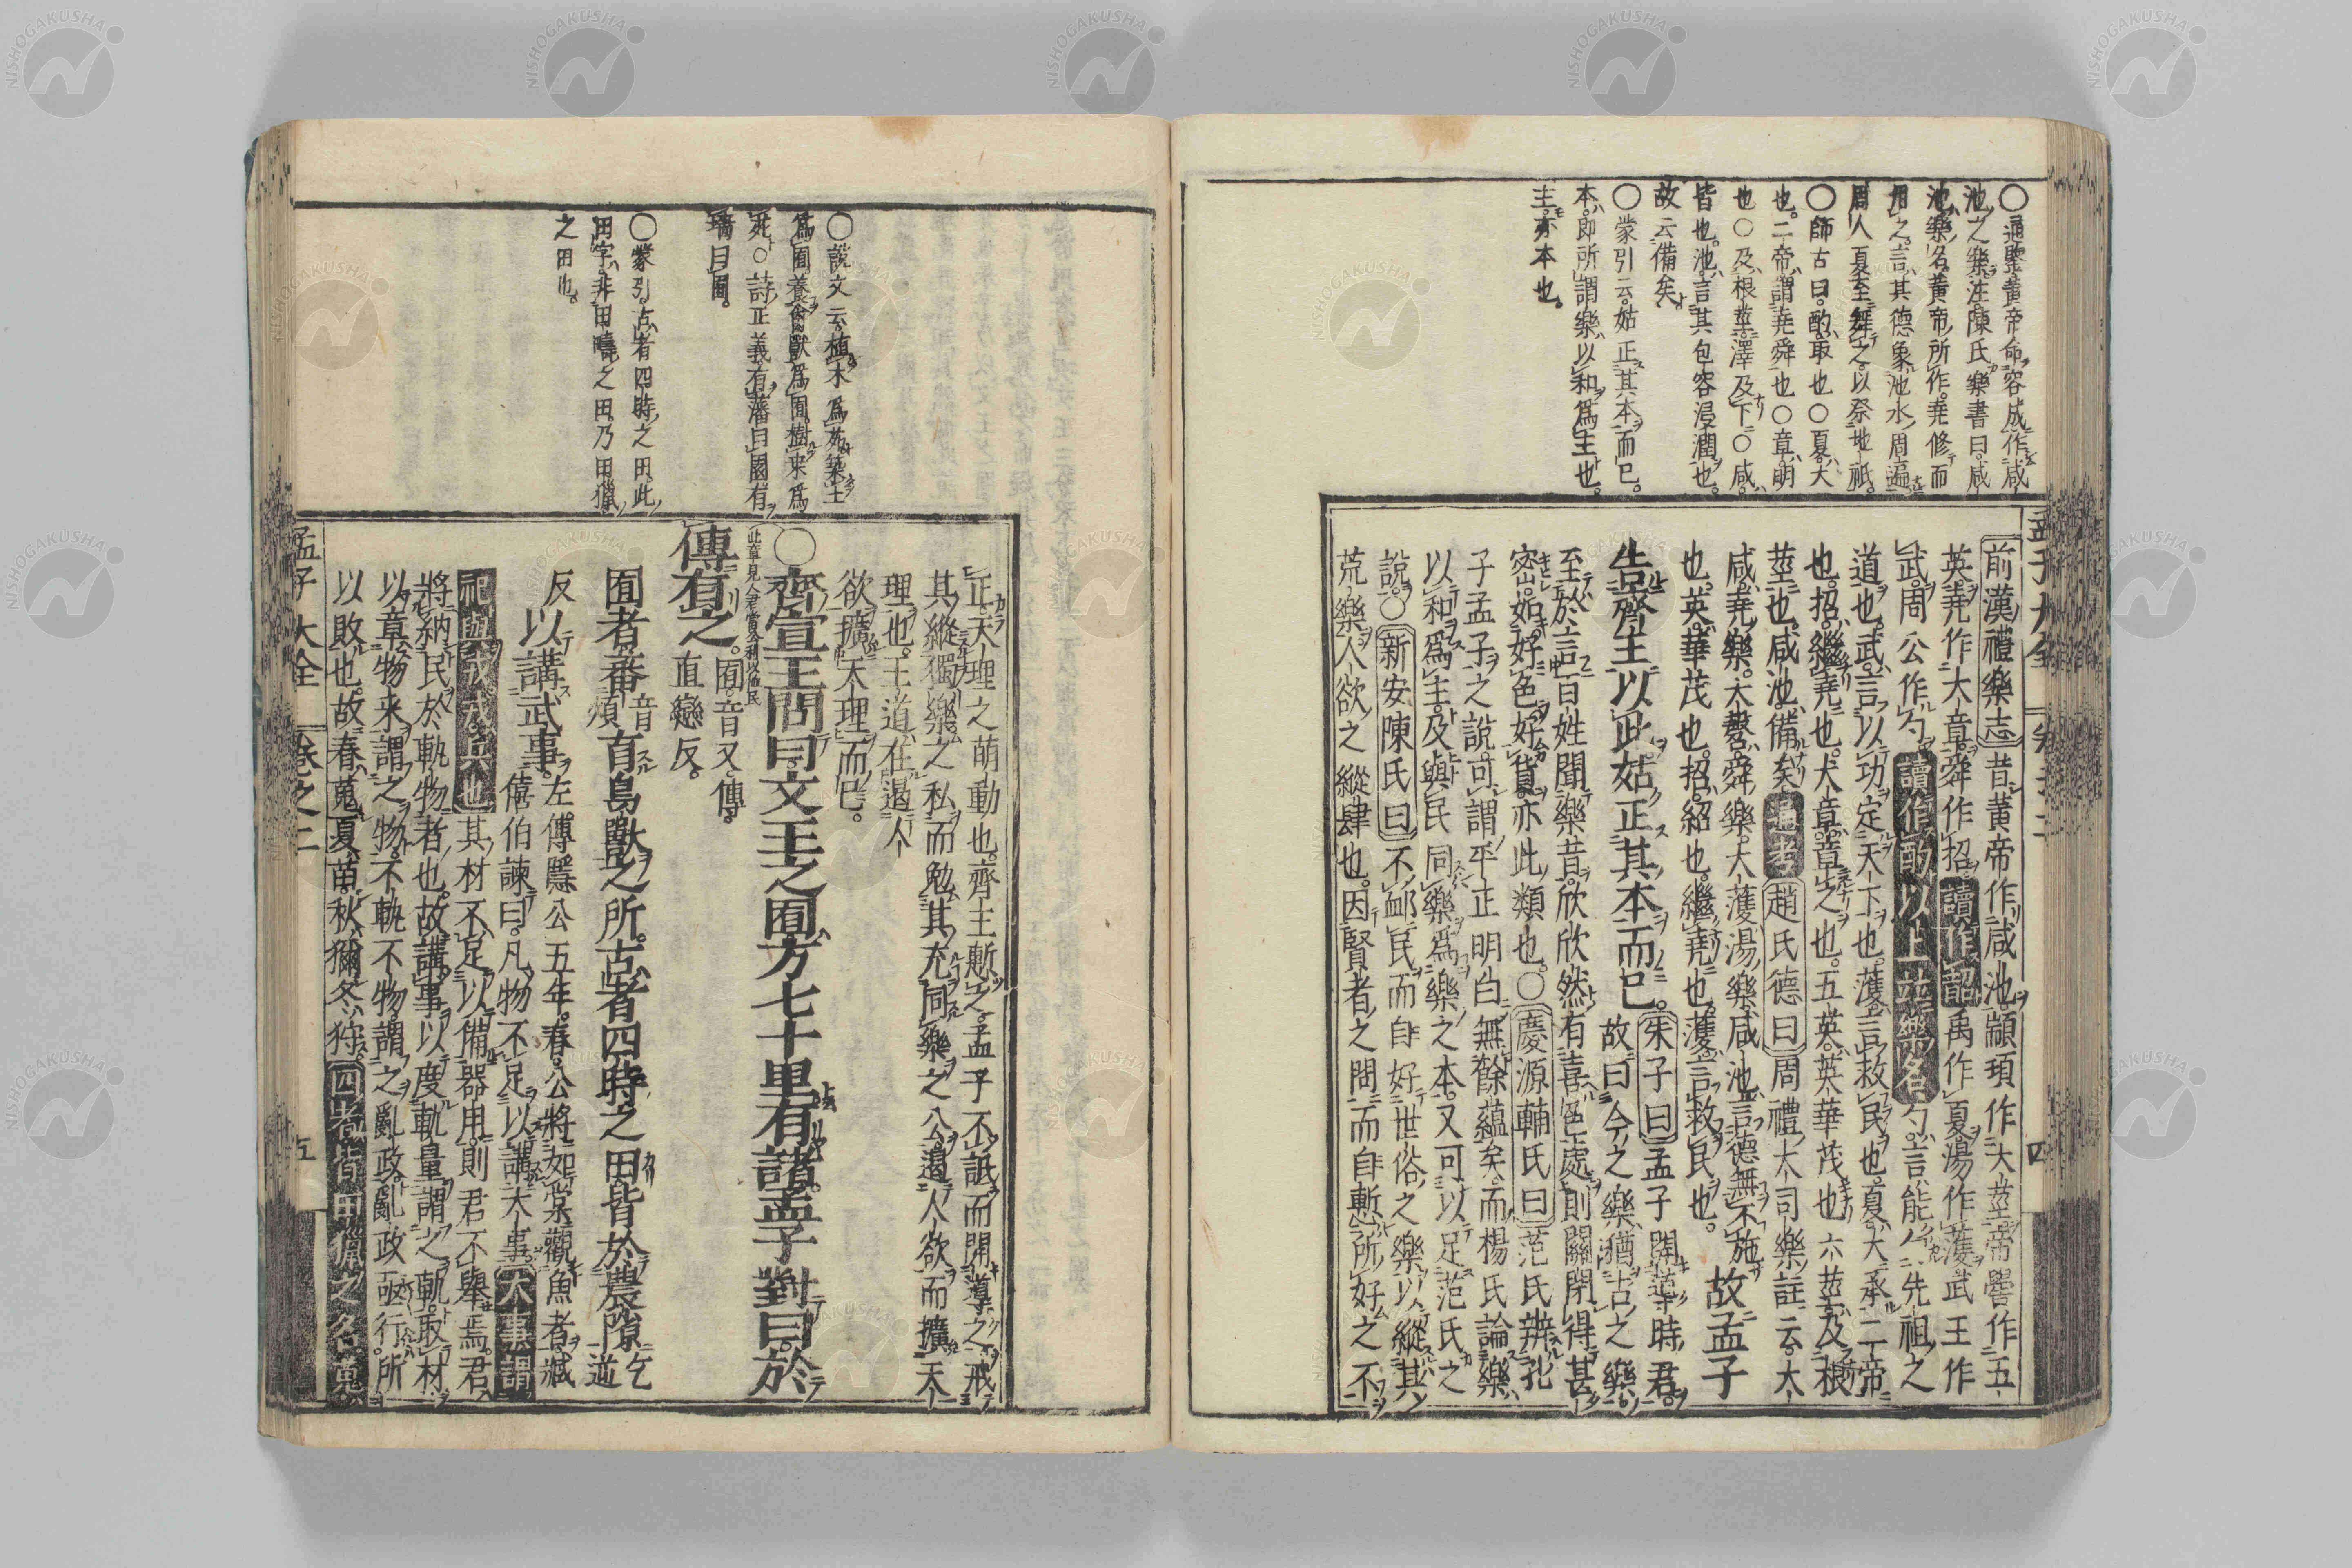 ○通鑒黃帝命容成作咸
池之樂注陳氏樂書曰咸
池樂名黃帝所作堯修而
用之言其德象池水周遍
周人夏至舞之以祭地祇
○師古曰酌取也○夏大
也二帝謂堯舜也○章明
也○及根莖澤及下○咸
皆也池言其包容浸潤也
故云備矣
○蒙引云姑正其本而已
本即所謂樂以和爲主也
主亦本也
孟子大全
四
前漢禮樂志昔黃帝作咸池顓頊作六莖帝嚳作五
英堯作大章舜作招讀作韶禹作夏湯作濩武王作
武周公作勺讀作酌以上並樂名勺言能勺先祖之
道也武言以功定天下也濩言救民也夏大承二帝
也招繼堯也大章章之也五英英華茂也六莖及根
莖也咸池備矣通考趙氏德曰周禮大司樂註云大
咸堯樂大磬舜樂大濩湯樂咸池言德無不施
也英華茂也招紹也繼堯也濩言救民也故孟子
告齊王以此姑正其本而已朱子曰孟子開導時君
故曰今之樂猶古之樂
至於言百姓聞樂音欣欣然有喜色處則關閉得甚
密如好色好貨亦此類也○慶源輔氏曰范氏辨孔
子孟子之說可謂平正明白無餘蘊矣而楊氏論樂
以和爲主及與民同樂爲樂之本又可以足范氏之
說○新安陳氏曰不卹民而自好世俗之樂以縱其
荒樂人欲之縱肆也因賢者之問而自慙所好之不
○說文云植木爲苑築土
爲囿養禽獸爲囿樹果爲
苑○詩正義有藩曰園有
墻曰囿
○蒙引古者四時之田此
田字非田疇之田乃田獵
之田也
正天理之萌動也齊王慙之孟子不詆而開導之戒
其縱獨樂之私而勉其充同樂之公遏人欲而擴天
理也王道在遏人
欲擴天理而已
○齊宣王問曰文王之囿方七十里有諸孟子對曰於
此章見人君當公利以恤民
傳有之囿音又傳
直戀反
囿者蕃音煩育鳥獸之所古者四時之田皆於農隙乞逆
反以講武事左傳隱公五年春公將如棠觀魚者臧
僖伯諫曰凡物不足以講大事大事謂
祀與戎戎兵也其材不足以備器用則君不舉焉君
將納民於軌物者也故講事以度軌量謂之軌取材
以章物采謂之物不軌不物謂之亂政亂政亟行所
以敗也故春蒐夏苗秋獮冬狩四者皆田獵之名蒐
孟子大全
卷之二
五
NISHOGAKUSHA